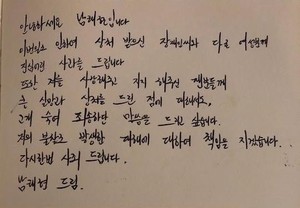 안녕하세요 남태현입니다
이번일로 인하여 상처 받으신 장재인씨와 다른 여성분께
진심어린 사과를 드립니다.
또한 저를 사랑해주고 지지 해주신 팬분들께
큰 실망과 상처를 드린 점에 대해서도,
고개 숙여 죄송하단 말씀을 드리고 싶습니다.
저의 불찰로 발생한 피해에 대하여 책임을 지겠습니다.
다시한번 사죄 드립니다.
남태현 드림.